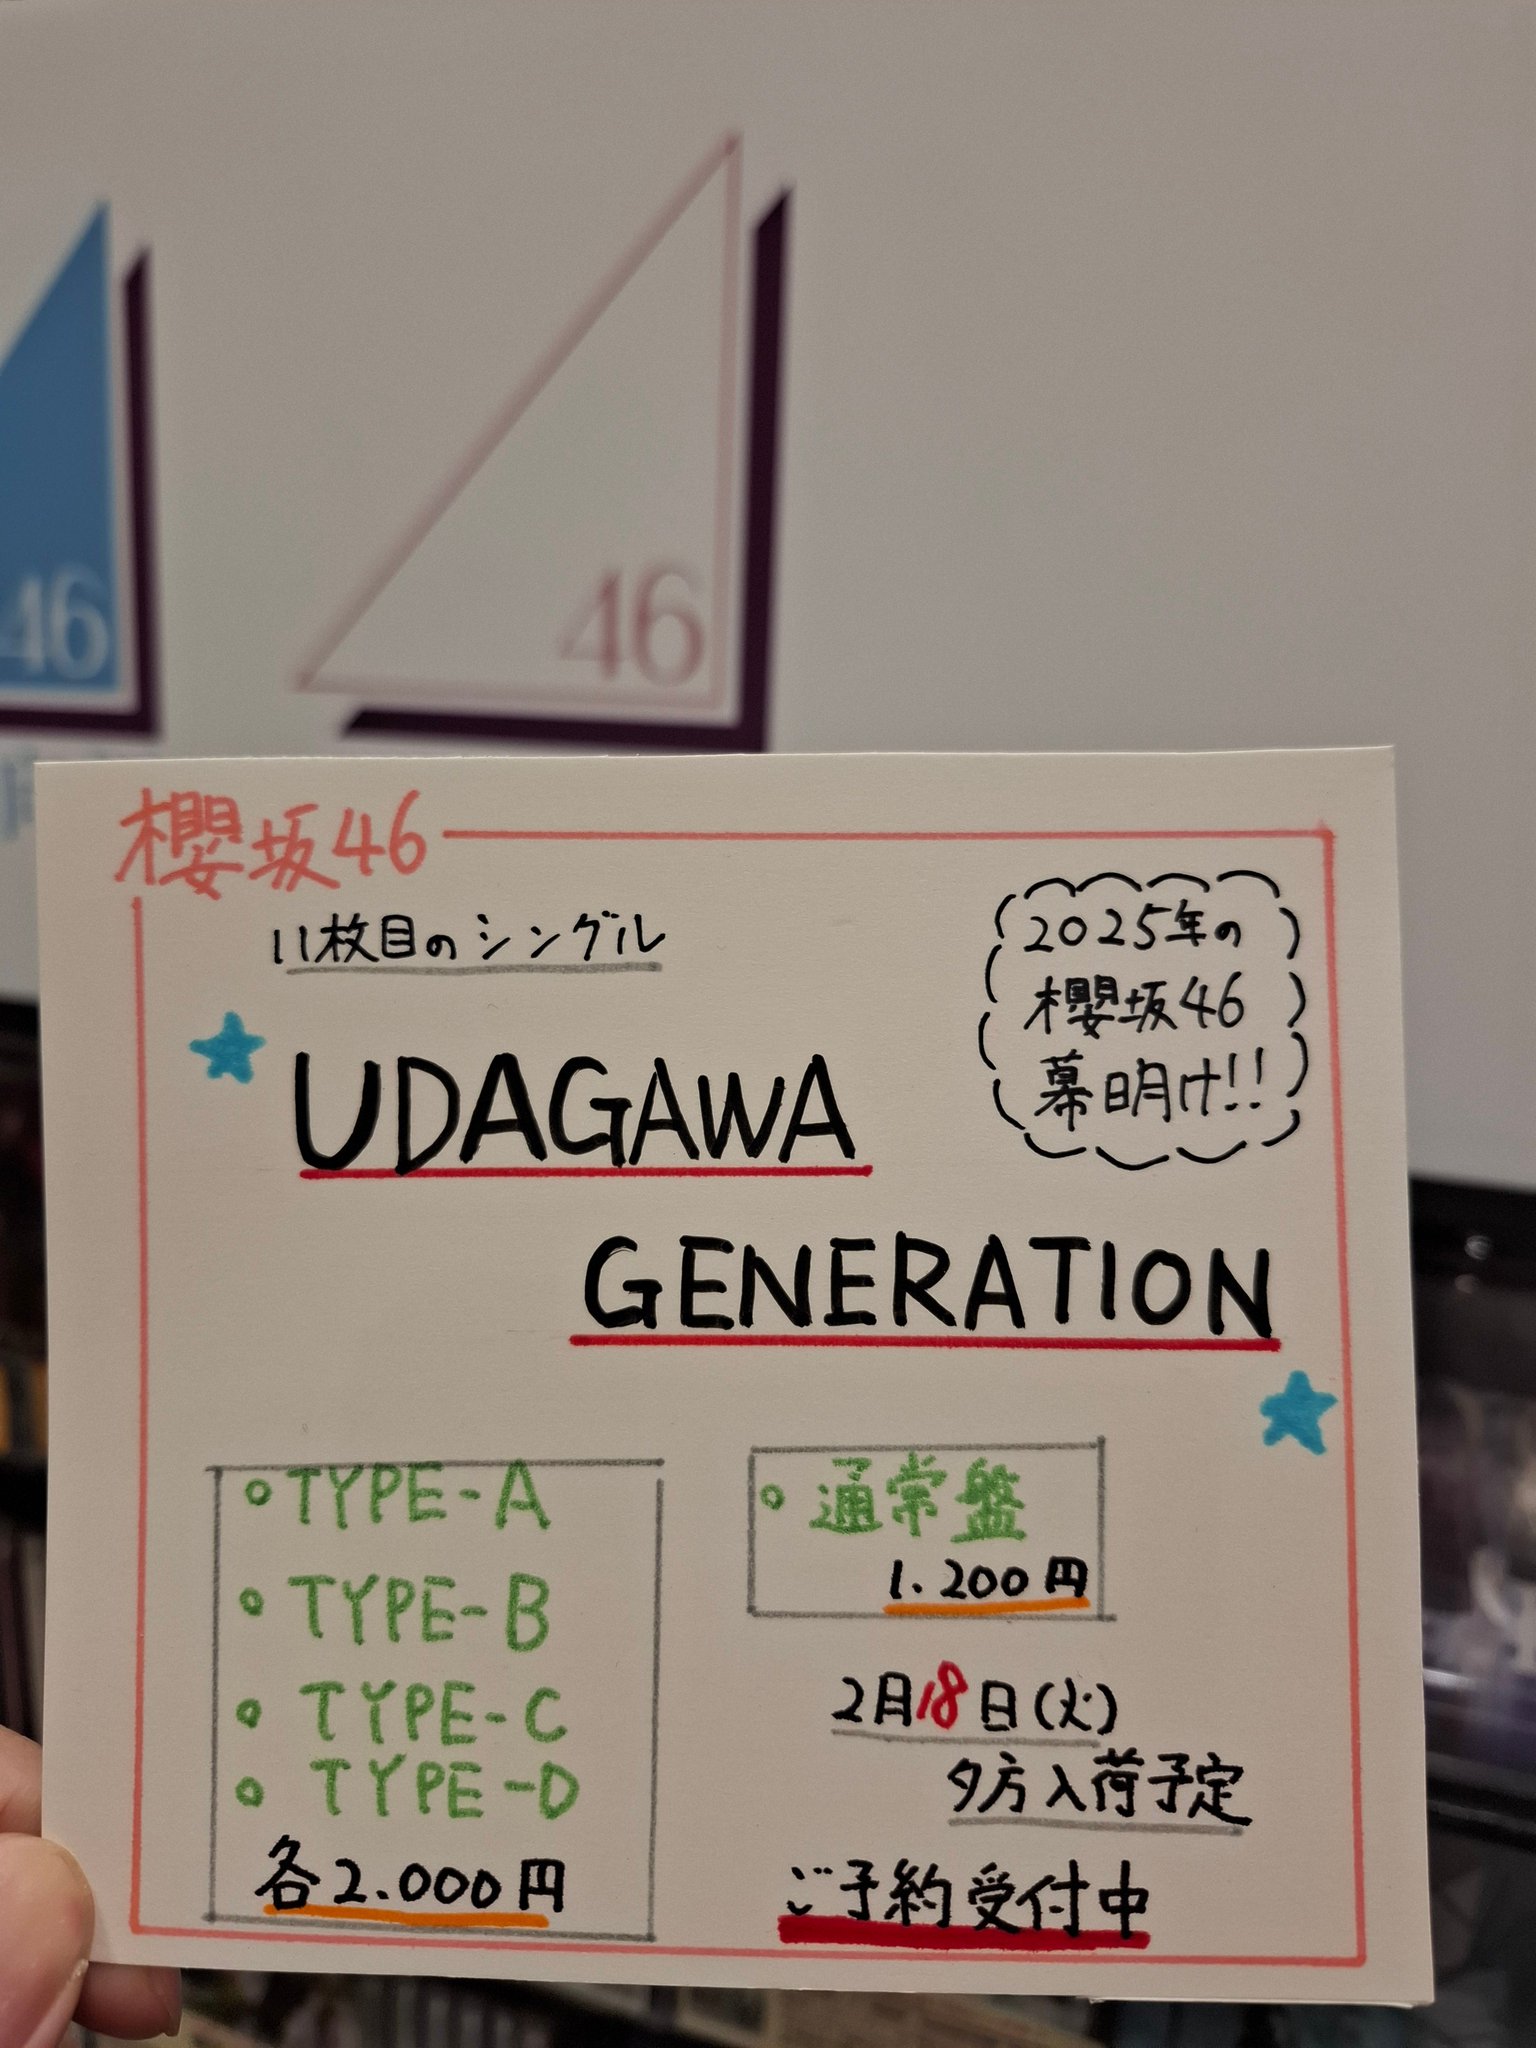 46
46
櫻坂46
11枚目のシングル
2025年の
櫻坂46
幕明け!!
UDAGAWA
GENERATION
○TYPE-A
○TYPE-B
○TYPE-C
○TYPE-D
各2.000円
○通常盤
1.200円
2月18日(火)
夕方入荷予定
ご予約受付中